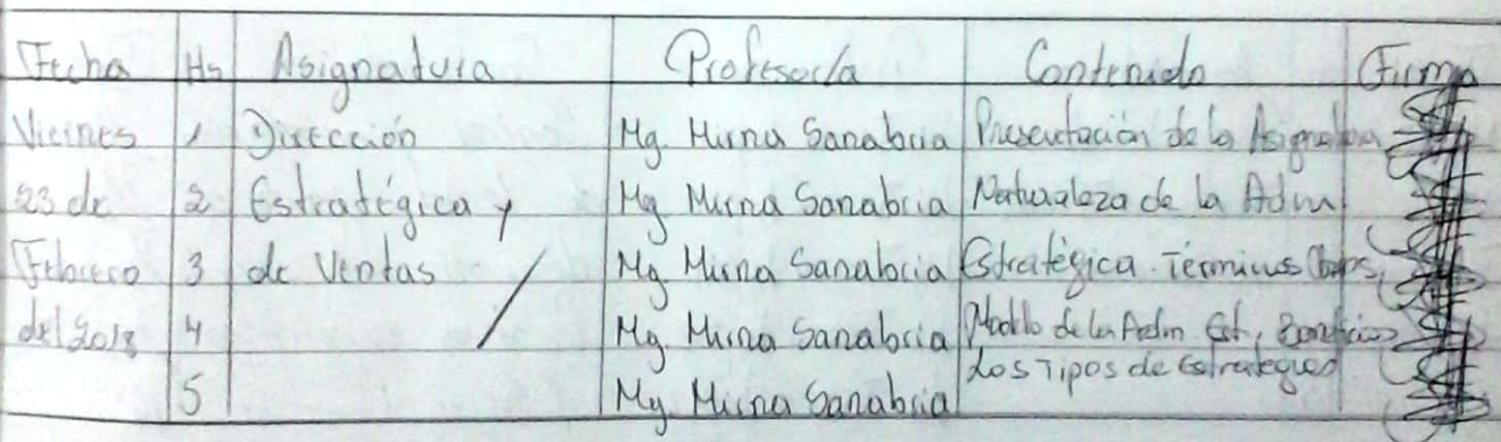 Fecha Hs Asignatura Profesor/a Contenido Firma
Viernes 1 Dirección Mg. Mirna Sanabria Presentación de la Asignatura
23 de 2 Estratégica y Mg. Mirna Sanabria Naturaleza de la Adm
Febrero 3 de Ventas Mg. Mirna Sanabria Estratégica. Términos
del 2018 4 Mg. Mirna Sanabria Modelo de la Adm Est, Beneficios
5 Mg. Mirna Sanabria Los Tipos de Estrategias